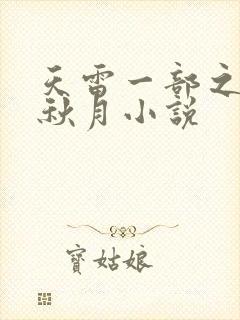 天雷一部之
秋月小說
寶姑娘